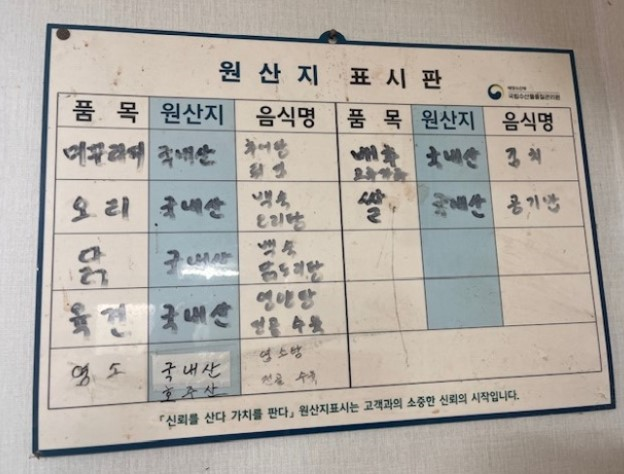 원산지 표시판
해양수산부
국립수산물품질관리원
품 목 원산지 음식명 품 목 원산지 음식명
미꾸라지 국내산 추어탕 배추 국내산 김치
튀김 고추가루
오리 국내산 백숙 쌀 국내산 공기밥
오리탕
닭 국내산 백숙
닭도리탕
육견 국내산 영양탕
전골 수육
염소 국내산 염소탕
호주산 전골 수육
「신뢰를 산다 가치를 판다」 원산지표시는 고객과의 소중한 신뢰의 시작입니다.